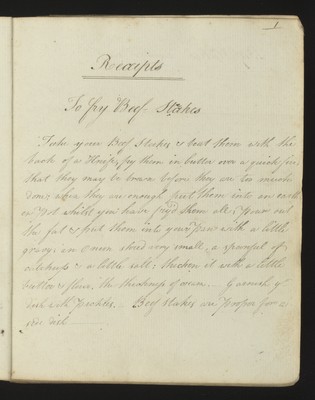 1
Receipts
To fry Beef Stakes
Take your Beef Stakes & beat them with the
back of a Knife, fry them in butter over a quick fire
that they may be brown before they are too much
done; when they are enough put them into an earth
en Pot whilst you have fry'd them all; pour out
the fat & put them into your pan with a little
gravy; an onion shred very small, a spoonful of
catchup & a little salt; thicken it with a little
butter & flour, the thickness of cream. Garnish yr
dish with Pickles. Beef Stakes are proper for a
side dish